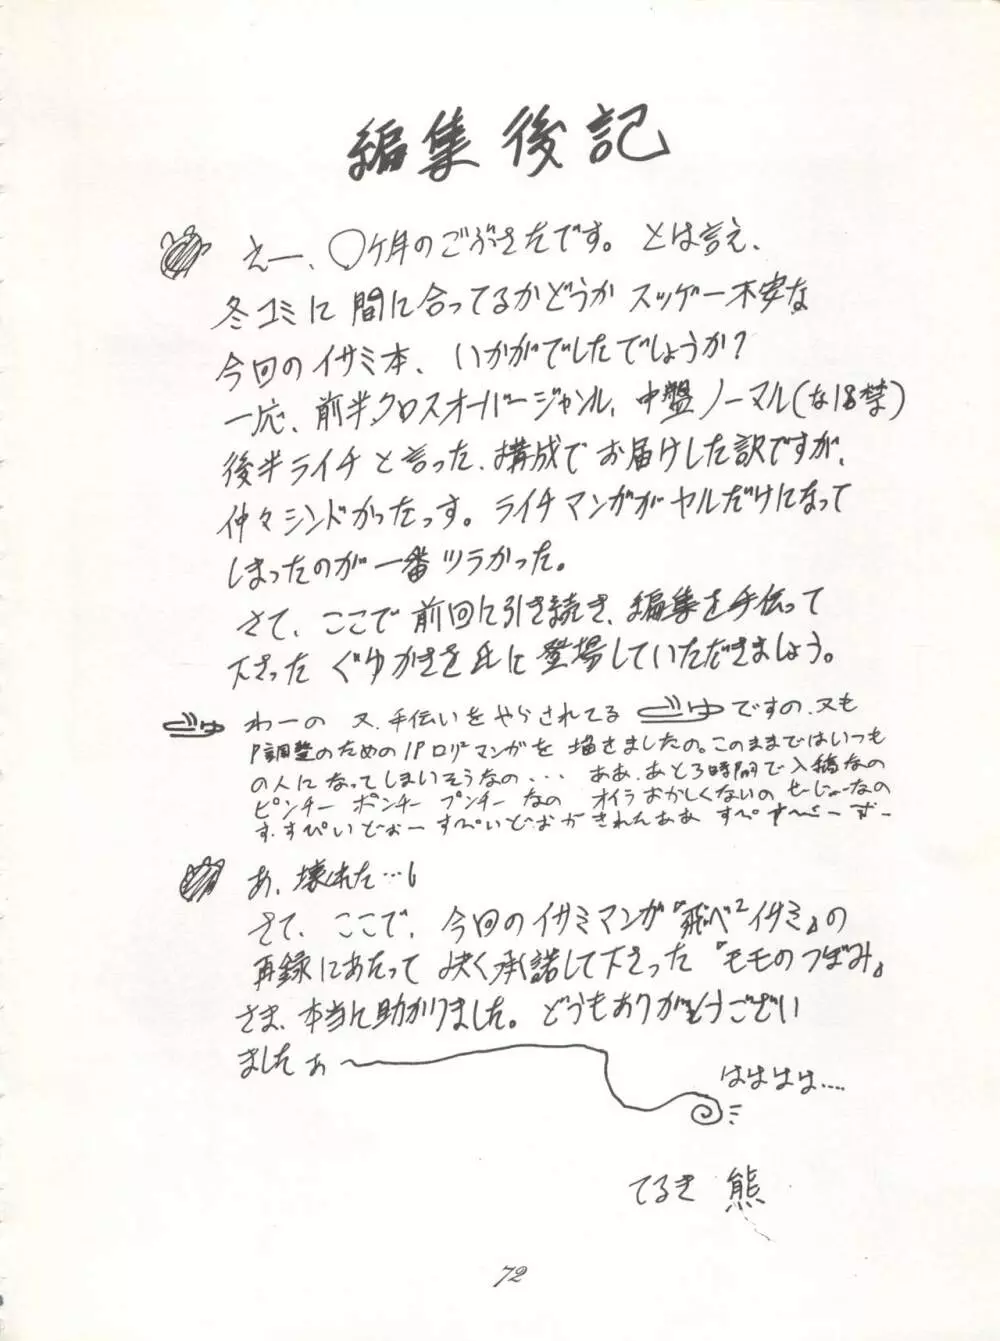 編集後記
えー、〇ケ月のごぶさたです。とは言え、
冬コミに間に合ってるかどうかスッゲー不安な
今回のイサミ本、いかがでしたでしょうか？
一応、前半クロスオーバージャンル、中盤ノーマル(な18禁)
後半ライチと言った、構成でお届けした訳ですが、
仲々シンドかったっす。ライチマンガがヤルだけになって
しまったのが一番ツラかった。
さて、ここで前回に引き続き、編集を手伝って
下さったぐゆかささ氏に登場していただきましょう。
わーの又、手伝いをやらされてるですの、又も
P調整のための1Pロリマンガを描きましたの。このままではいつも
の人になってしまいそうなの・・・ああ、あと3時間で入稿なの
ピンチー ポンチー プンチーなの オイラおかしくないの
す、すぴいどぉー すぴいどお
あ、壊れた…。
さて、ここで、今回のイサミマンガ『飛べ2イサミ』の
再録にあたって快く承諾して下さった『モモのつぼみ』
さま、本当に助かりました。どうもありがとうござい
ましたぁ〜
はははは....
てるき熊
72